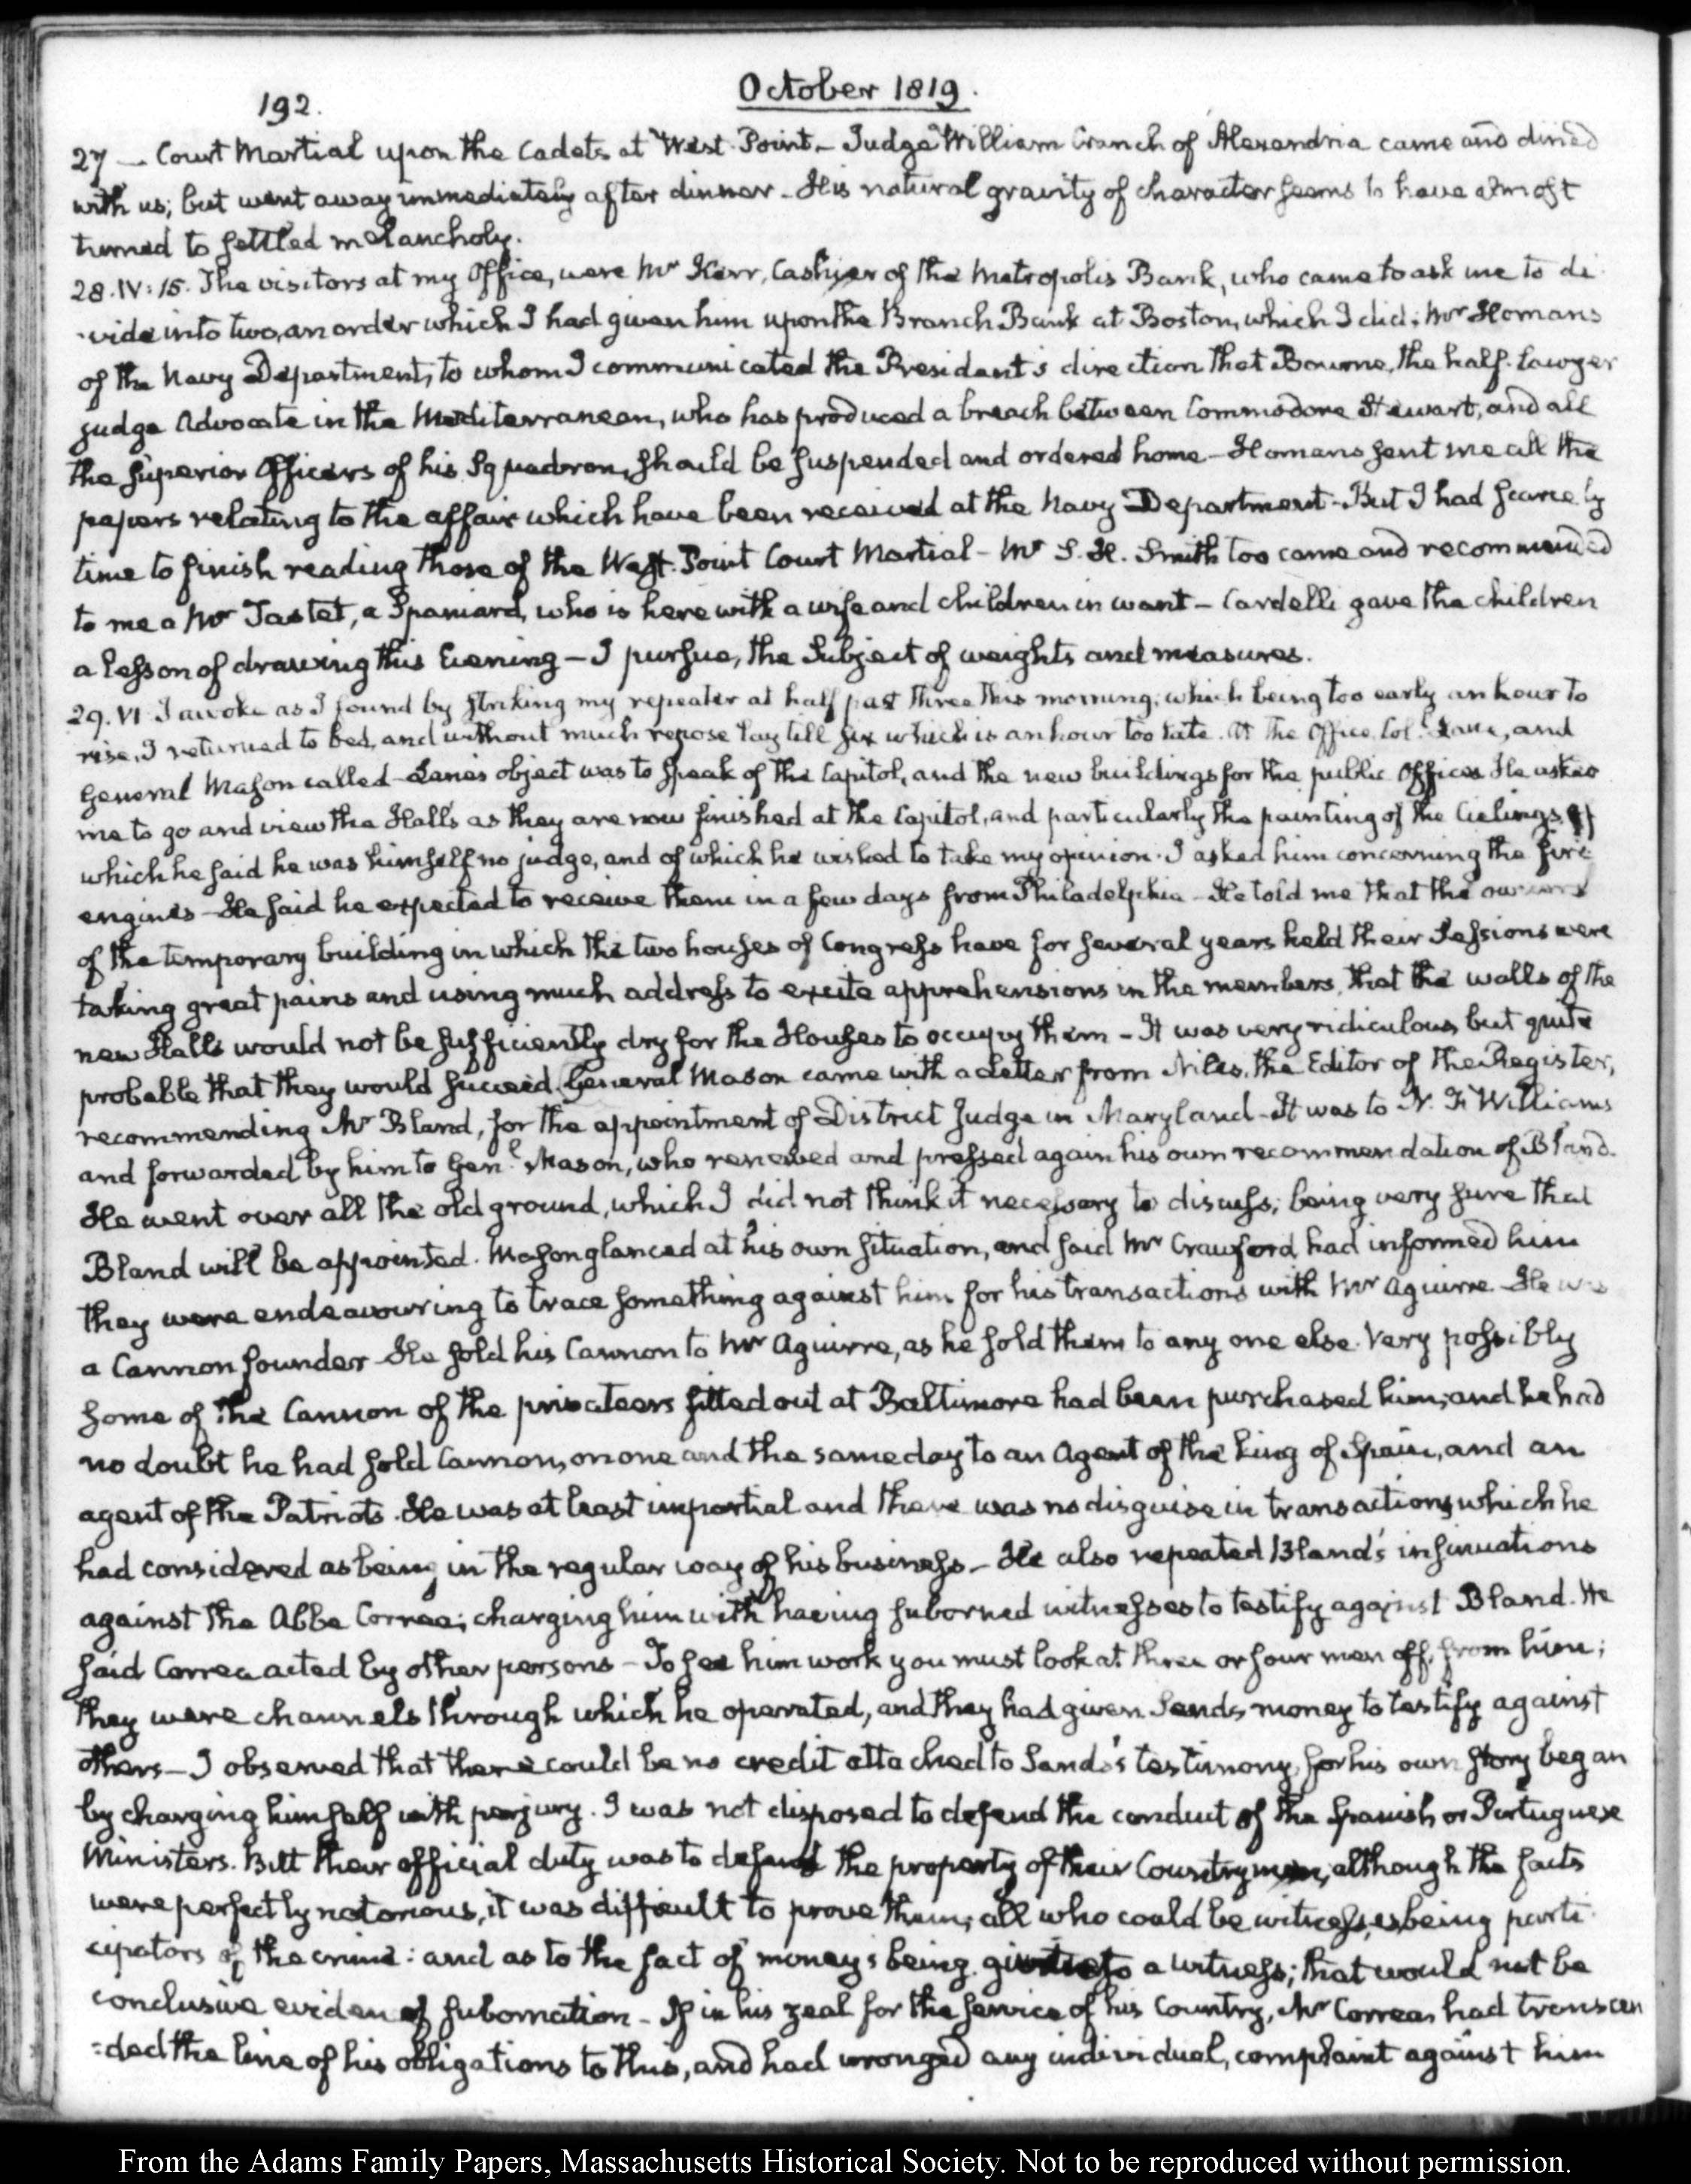 192.
October 1819.
27 — Court Martial upon the Cadets at West-Point — Judge William Cranch of Alexandria came and dined
with us; but went away immediately after dinner — His natural gravity of character seems to have almost
turned to settled melancholy.
28. IV:15. The visitors at my Office, were Mr Kerr, Cashier of the Metropolis Bank, who came to ask me to di-
-vide into two, an order which I had given him upon the Branch Bank at Boston, which I did; Mr Homans
of the Navy Department, to whom I communicated the President's direction that Bourne, the half-lawyer
judge Advocate in the Mediterranean, who has produced a breach between Commodore Stewart, and all
the superior Officers of his Squadron, should be suspended and ordered home — Homans sent me all the
papers relating to the affair which have been received at the Navy Department — But I had scarcely
time to finish reading those of the West-Point Court Martial — Mr S. H. Smith too came and recommended
to me a Mr Tastet, a Spaniard, who is here with a wife and children in want — Cardelli gave the children
a lesson of drawing this Evening — I pursue, the Subject of weights and measures.
29. VI. I awoke as I found by striking my repeater at half past three this morning; which being too early an hour to
rise, I returned to bed, and without much repose lay till six which is an hour too late. At the Office, Col. Lane, and
General Mason called — Lane's object was to speak of the Capitol, and the new buildings for the public Offices He asked
me to go and view the Halls as they are now finished at the Capitol, and particularly the painting of the Cielings, of
which he said he was himself no judge, and of which he wished to take my opinion. I asked him concerning the fire
engines — He said he expected to receive them in a few days from Philadelphia — He told me that the owners
of the temporary building in which the two houses of Congress have for several years held their Sessions were
taking great pains and using much address to excite apprehensions in the members, that the walls of the
new Halls would not be sufficiently dry for the Houses to occupy them — It was very ridiculous, but quite
probable that they would succeed. General Mason came with a Letter from Niles, the Editor of the Register,
recommending Mr Bland, for the appointment of District Judge in Maryland — It was to N. F. Williams
and forwarded by him to Genl. Mason, who renewed and pressed again his own recommendation of Bland.
He went over all the old ground, which I did not think it necessary to discuss; being very sure that
Bland will be appointed. Mason glanced at his own situation, and said Mr Crawford had informed him
they were endeavouring to trace something against him for his transactions with Mr Aguirre — He was
a Cannon founder — He sold his Cannon to Mr Aguirre, as he sold them to any one else. Very possibly
some of the Cannon of the privateers fitted out at Baltimore had been purchased him; and he had
no doubt he had sold Cannon, on one and the same day to an Agent of the King of Spain, and an
agent of the Patriots. He was at least impartial and there was no disguise in transactions which he
had considered as being in the regular way of his business — He also repeated Bland's insinuations
against the Abbe Correa; charging him with having suborned witnesses to testify against Bland. He
said Correa acted by other persons — To see him work you must look at three or four men off, from him;
they were channels through which he operated, and they had given Sands money to testify against
others — I observed that there could be no credit attached to Sands's testimony, for his own story began
by charging himself with perjury. I was not disposed to defend the conduct of the Spanish or Portuguese
Ministers. But their official duty was to defend the property of their Countrymen, although the facts
were perfectly notorious, it was difficult to prove them; all who could be witnesses, being parti-
cipators of the crime: and as to the fact of money's being given to a witness; that would not be
conclusive eviden of subornation — If in his zeal for the service of his Country, Mr Correa, had transcen
=ded the line of his obligations to this, and had wronged any individual, complaint against him
From the Adams Family Papers, Massachusetts Historical Society. Not to be reproduced without permission.